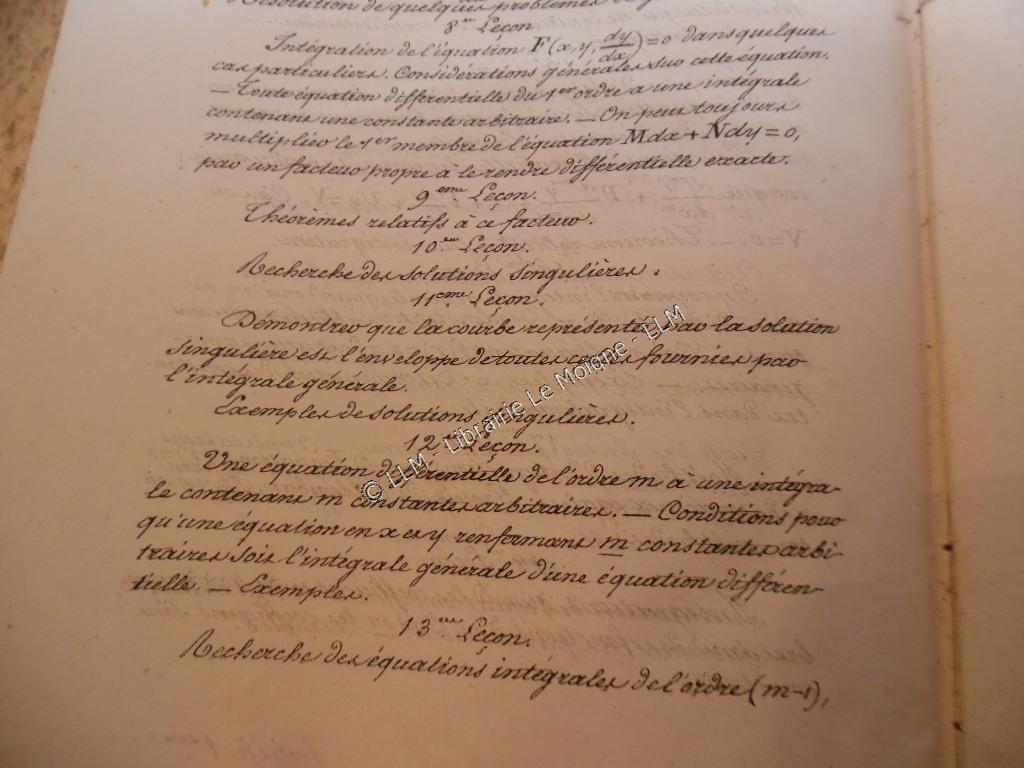 Résolution de quelques problèmes de
8.me Leçon.
Intégration de l'équation F(x, y, dy/dx) = 0 dans quelques
cas particuliers. Considérations générales sur cette équation.
— Toute équation différentielle du 1er ordre a une intégrale
contenant une constante arbitraire. — On peut toujours
multiplier le 1er membre de l'équation Mdx + Ndy = 0,
par un facteur propre à le rendre différentielle exacte.
9eme Leçon.
Théorèmes relatifs à ce facteur.
10.me Leçon.
Recherche des solutions singulières.
11eme Leçon.
Démontrer que la courbe représentée par la solution
singulière est l'enveloppe de toutes celles fournies par
l'intégrale générale.
Exemples de solutions singulières.
12.me Leçon.
Une équation différentielle de l'ordre m a une intégra-
le contenant m constantes arbitraires. — Conditions pour
qu'une équation en x et y renfermant m constantes arbi-
traires soit l'intégrale générale d'une équation différen-
tielle. — Exemples.
13.me Leçon.
Recherche des équations intégrales de l'ordre (m-1),
© LLM - Librairie Le Moigne - LLM